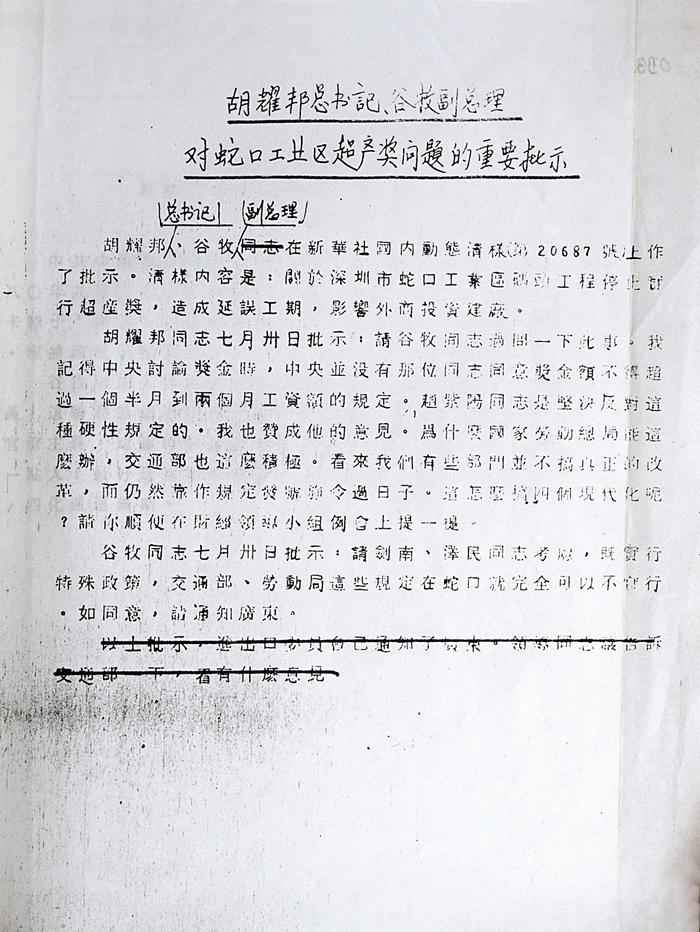 胡耀邦总书記、谷牧副总理
对蛇口工业区超产奖问题的重要批示
总书记 副总理
胡耀邦、谷牧同志在新華社國内動態清樣(第20687號)上作
了批示。清樣内容是：關於深圳市蛇口工業區碼頭工程停止實
行超産獎，造成延誤工期，影響外商投資建廠。
胡耀邦同志七月卅日批示：請谷牧同志過問一下此事。我
記得中央討論獎金時，中央並没有那位同志同意奬金額不得超
過一個半月到兩個月工資額的規定。趙紫陽同志是堅決反對這
種硬性規定的。我也贊成他的意見。爲什麽國家勞動總局能這
麽辦，交通部也這麽積極。看來我們有些部門並不搞真正的改
革，而仍然靠作規定發號施令過日子。這怎麽搞四個現代化呢
？請你順便在財經領導小組例會上提一提。
谷牧同志七月卅日批示：請劍南、澤民同志考慮，既實行
特殊政策，交通部、勞動局這些規定在蛇口就完全可以不實行
。如同意，請通知廣東。
以上批示，進出口委員會已通知了廣東。領導同志讓告訴
交通部一下，看有什麽意見